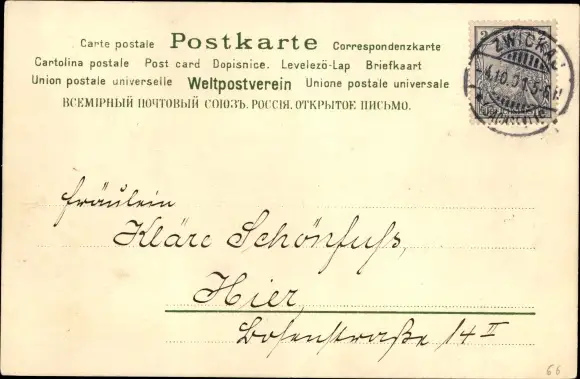 Carte postale Postkarte Correspondenzkarte
Cartolina postale Post card Dopisnice. Levelezö-Lap Briefkaart
Union postale universelle Weltpostverein Unione postale universale
ВСЕМІРНЫЙ ПОЧТОВЫЙ СОЮЗЪ. РОССІЯ. ОТКРЫТОЕ ПИСЬМО.
ZWICKAU
Fräulein
Kläre Schönfuß,
Hier,
Bosenstraße 14 II
66